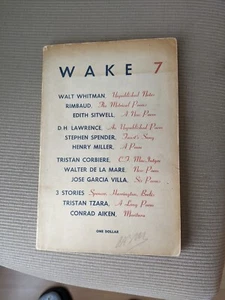 WAKE 7
WALT WHITMAN, Unpublished Notes
RIMBAUD, The Metrical Poems
EDITH SITWELL, A New Poem
D.H. LAWRENCE, An Unpublished Poem
STEPHEN SPENDER, Faust's Song
HENRY MILLER, A Poem
TRISTAN CORBIERE, C.F. MacIntyre
WALTER DE LA MARE, New Poem
JOSE GARCIA VILLA, Six Poems
3 STORIES
TRISTAN TZARA, A Long Poem
CONRAD AIKEN,
ONE DOLLAR